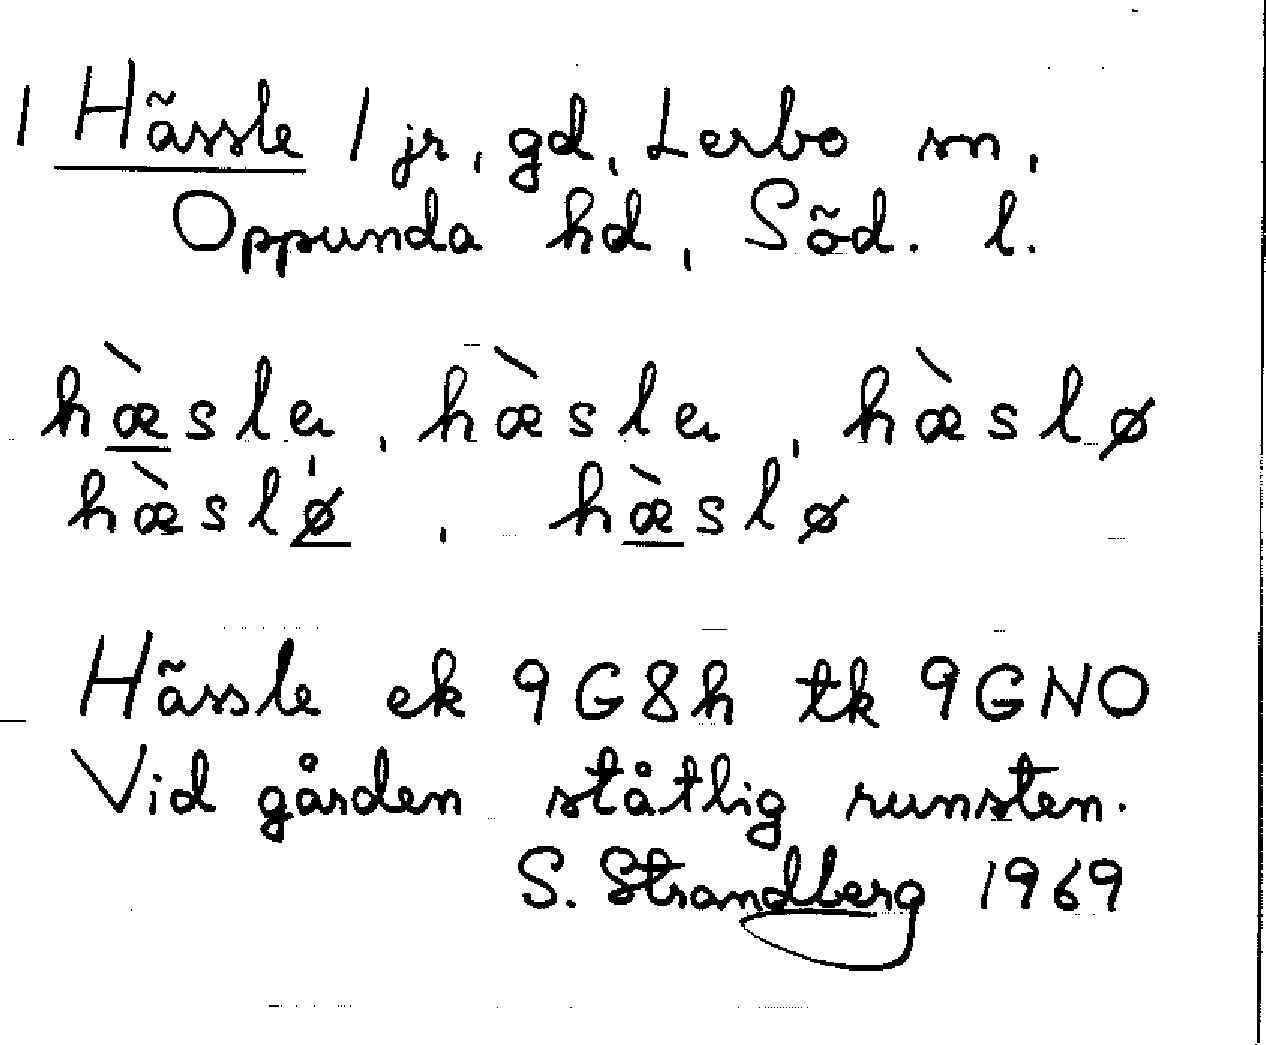 1 Hässle 1 jr, gd, Lerbo sn,
Oppunda hd, Söd. l.
hæ̀slɐ, hæ̀slɐ, hæ̀slø
hæ̀slø, hæ̀slø
Hässle ek 9G8h tk 9GNO
Vid gården ståtlig runsten.
S. Strandberg 1969